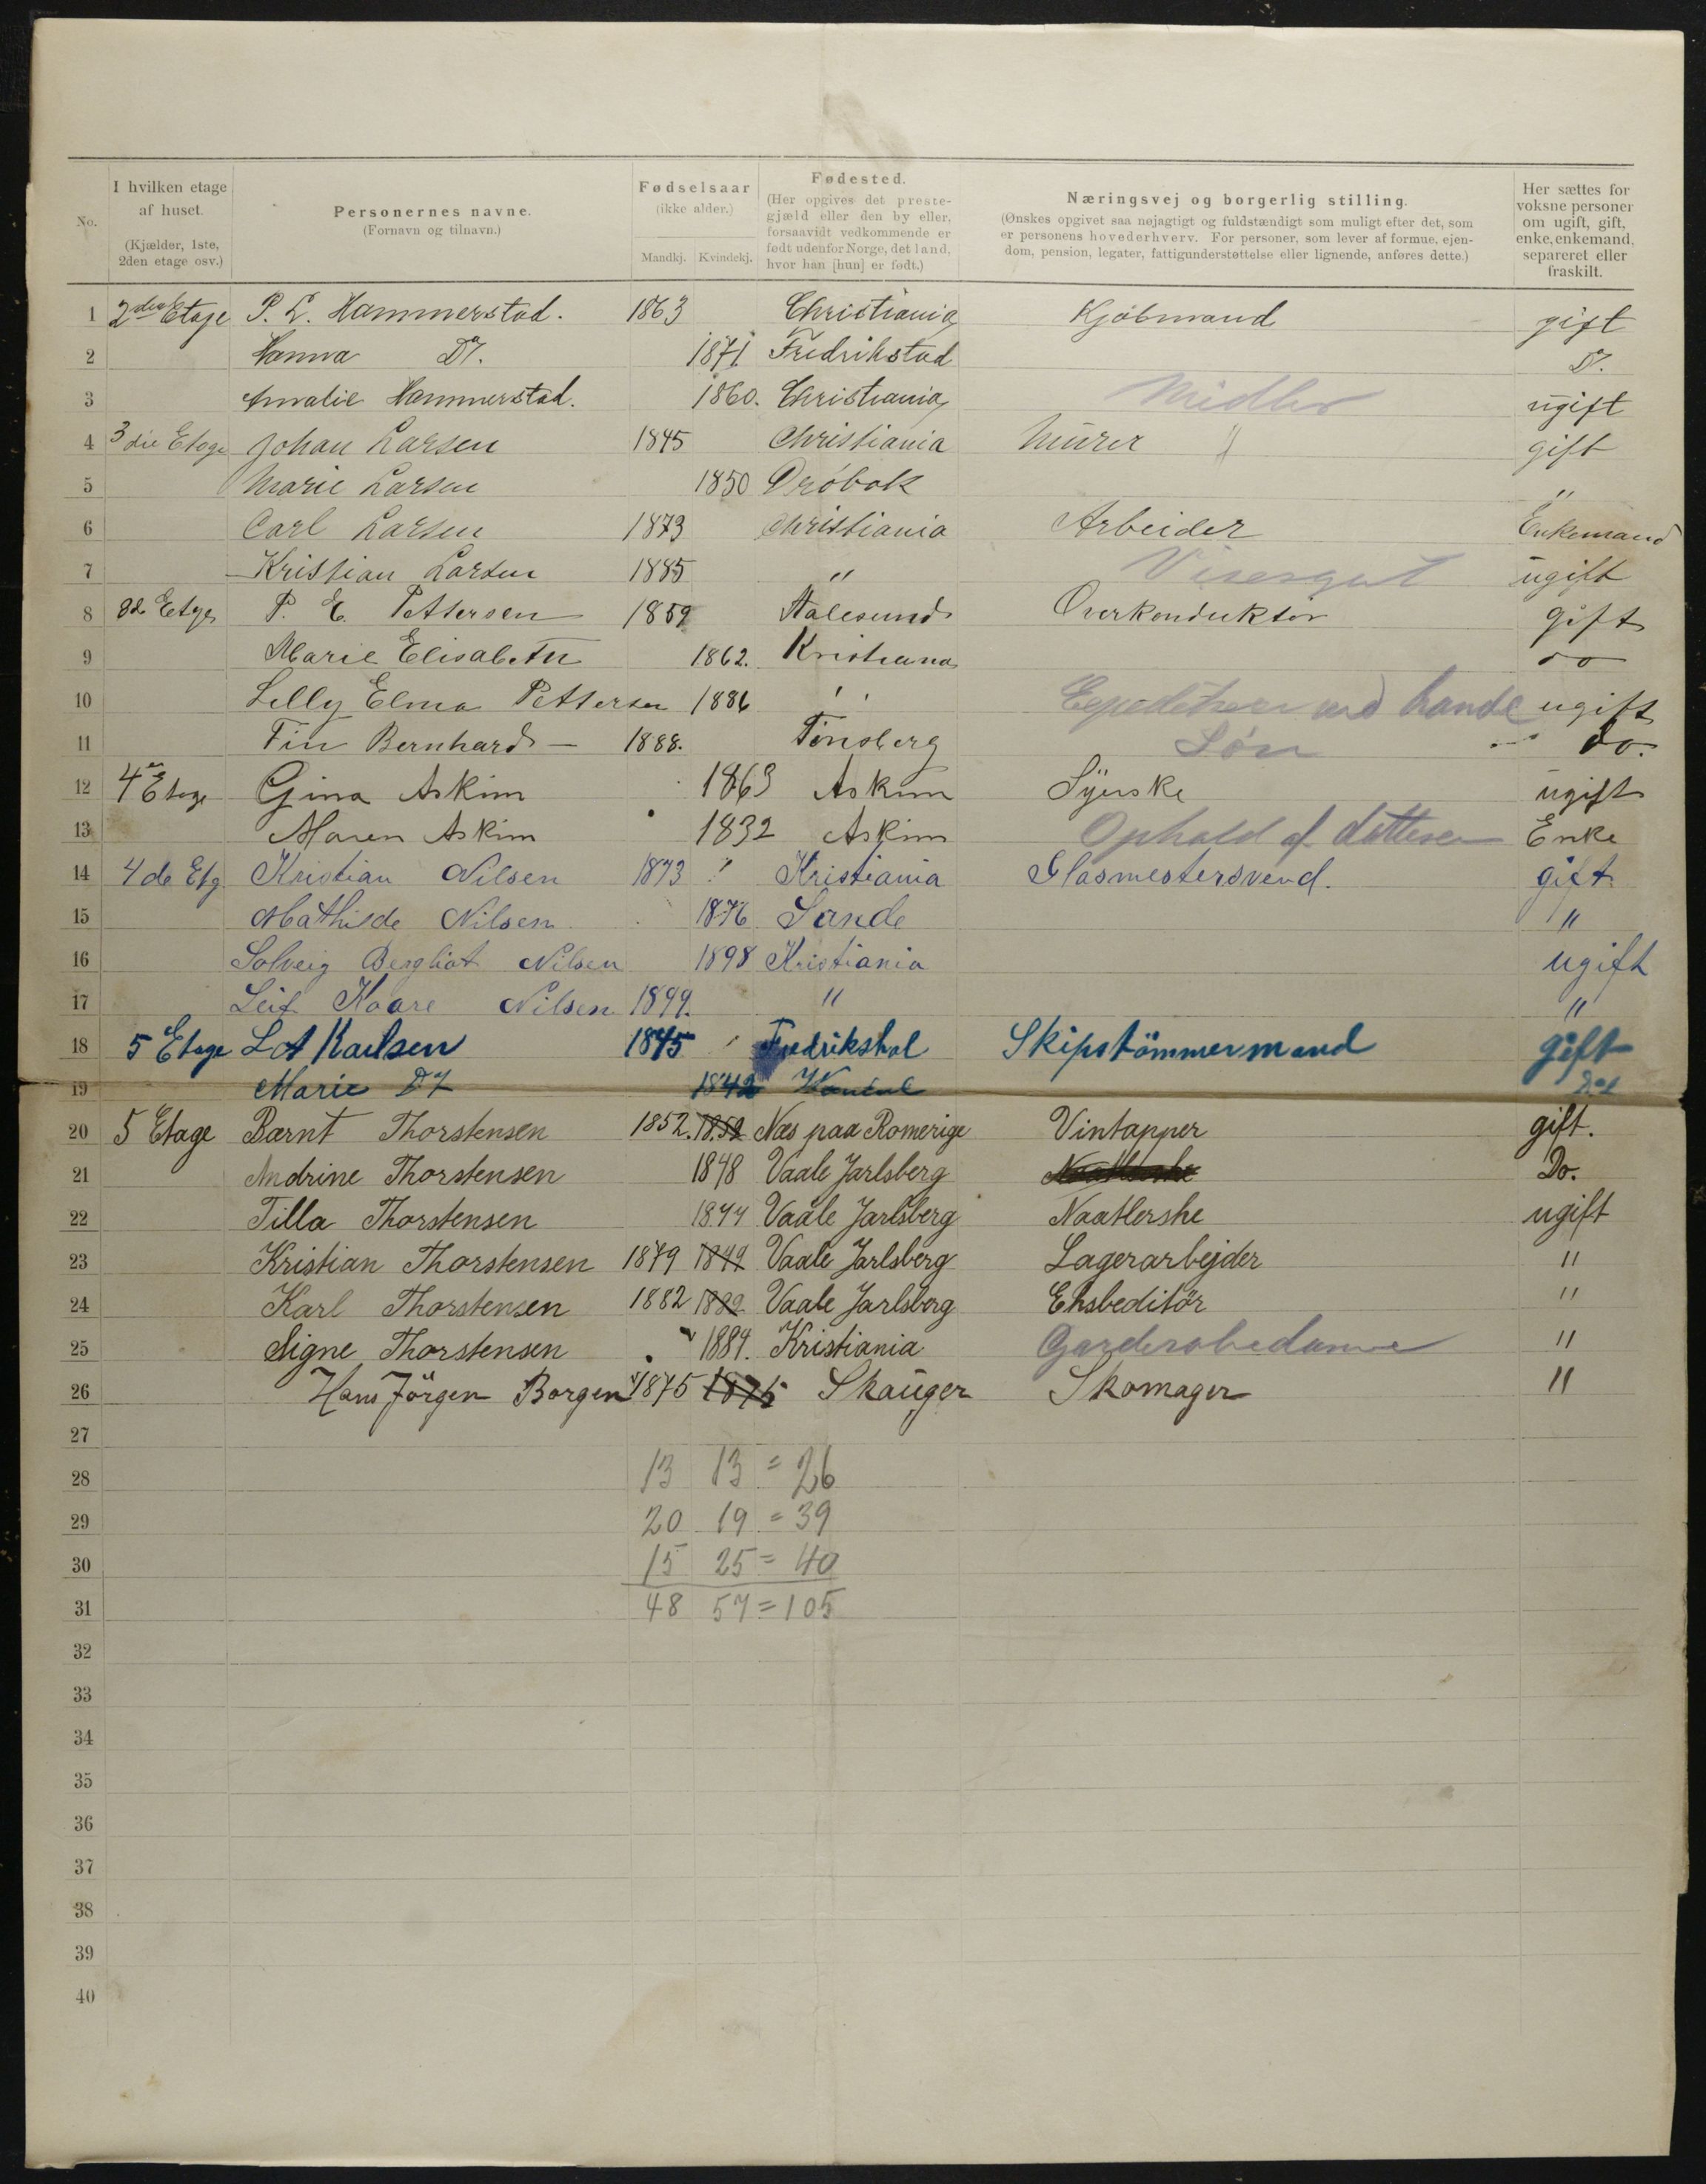 No.
I hvilken etage af huset.
(Kjælder, 1ste, 2den etage osv.)
Personernes navne.
(Fornavn og tilnavn.)
Fødselsaar
(ikke alder.)
Mandkj. Kvindekj.
Fødested.
(Her opgives det prestegjæld eller den by eller, forsaavidt vedkommende er født udenfor Norge, det land, hvor han [hun] er født.)
Næringsvej og borgerlig stilling.
(Ønskes opgivet saa nøjagtigt og fuldstændigt som muligt efter det, som er personens hovederhverv. For personer, som lever af formue, ejendom, pension, legater, fattigunderstøttelse eller lignende, anføres dette.)
Her sættes for voksne personer om ugift, gift, enke, enkemand, separeret eller fraskilt.
1 2den Etage P. L. Hammerstad. 1863 Christiania Kjöbmand gift
2 Hanna Do. 1871 Fredrikstad Do.
3 Amalie Hammerstad. 1860. Christiania Midler ugift
4 3die Etage Johan Larsen 1845 Christiania Murer gift
5 Marie Larsen 1850 Dröbak "
6 Carl Larsen 1873 Christiania Arbeider Enkemand
7 Kristian Larsen 1885 " Visergut ugift
8 3de Etge P. E. Pettersen 1859 Aalesund Overkonduktör gift
9 Marie Elisabeth 1862. Kristiana do
10 Lilly Elma Pettersen 1886 " Expeditrice ved handel ugift
11 Fin Bernhard — 1888. Tönsberg Søn do.
12 4de Etage Gina Askim 1863 Askim Syerske ugift
13 Maren Askim 1832 Askim Ophold af datteren Enke
14 4de Etg. Kristian Nilsen 1873 " Kristiania Glasmestersvend. gift
15 Mathilde Nilsen 1876 Sande "
16 Solveig Bergliot Nilsen 1898 Kristiania ugift
17 Leif Kaare Nilsen 1899. " "
18 5 Etage L A Karlsen 1845 Fredrikshal Skipstömmermand gift
19 Marie Do 1842 Do
20 5 Etage Barnt Thorstensen 1852. 1852 Næs paa Romerige Vintapper gift.
21 Andrine Thorstensen 1848 Vaale Jarlsberg Do.
22 Tilla Thorstensen 1877 Vaale Jarlsberg Naatlerske ugift
23 Kristian Thorstensen 1879 1879 Vaale Jarlsberg Lagerarbejder "
24 Karl Thorstensen 1882 1882 Vaale Jarlsberg Eksbeditör "
25 Signe Thorstensen 1884. Kristiania Garderobedame "
26 Hans Jörgen Borgen 1875 1875 Skauger Skomager "
27
28 13 13 = 26
29 20 19 = 39
30 15 25 = 40
31 48 57 = 105
32
33
34
35
36
37
38
39
40